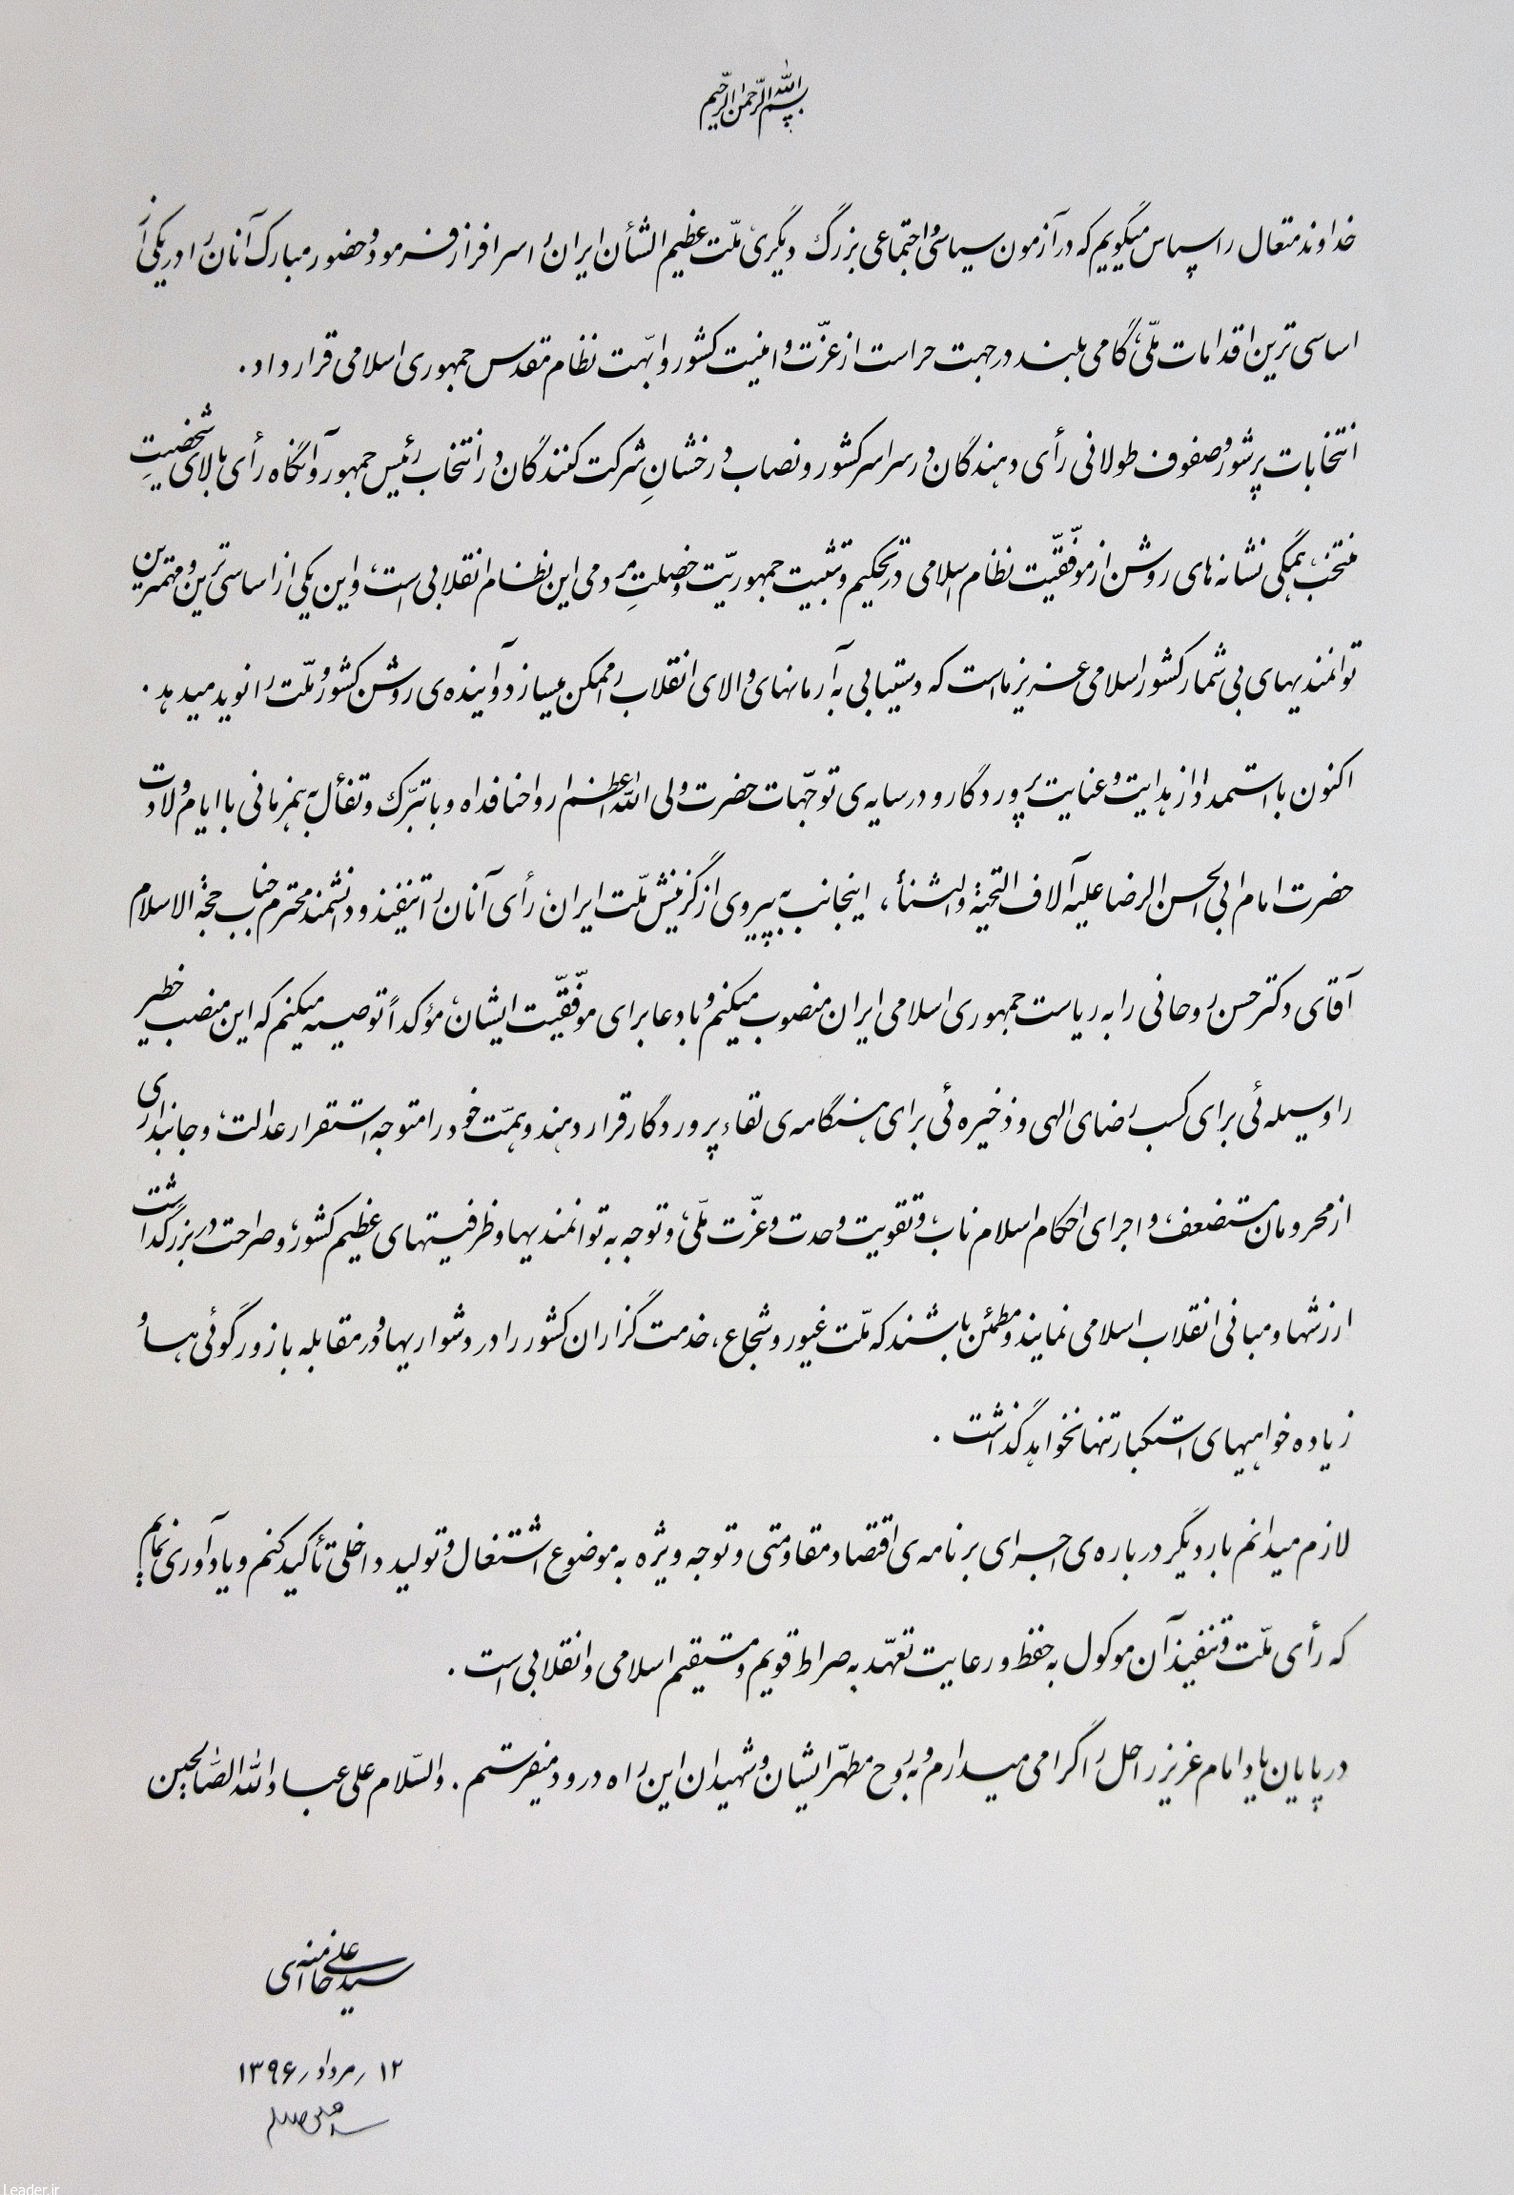 بسم الله الرحمن الرحیم
خداوند متعال را سپاس میگویم که در آزمون سیاسی و اجتماعی بزرگ دیگری، ملّت عظیم الشأن ایران را سرافراز فرمود و حضور مبارک آنان را در یکی از
اساسی ترین اقدامات ملّی، گامی بلند در جهت حراست از عزّت و امنیت کشور و ابّهت نظام مقدس جمهوری اسلامی قرار داد.
انتخابات پرشور و صفوف طولانی رأی دهندگان در سراسر کشور و نصاب درخشانِ شرکت کنندگان در انتخاب رئیس جمهور و آنگاه رأی بالای شخصیتِ
منتخب، همگی نشانه های روشن از موفّقیّت نظام اسلامی در تحکیم و تثبیت جمهوریّت و خصلتِ مردمی این نظام انقلابی است، و این یکی از اساسی ترین و مهمترین
توانمندیهای بی شمار کشور اسلامی عزیز ما است که دستیابی به آرمانهای والای انقلاب را ممکن میسازد و آینده ی روشن کشور و ملّت را نوید میدهد.
اکنون با استمداد از هدایت و عنایت پروردگار و در سایه ی توجّهات حضرت ولی الله الاعظم ارواحنا فداه و با تبرّک و تفأل به همزمانی با ایام ولادت
حضرت امام ابی الحسن الرضا علیه آلاف التحیة و الثناء، اینجانب به پیروی از گزینش ملّت ایران، رأی آنان را تنفیذ و دانشمند محترم جناب حجة الاسلام
آقای دکتر حسن روحانی را به ریاست جمهوری اسلامی ایران منصوب میکنم و با دعا برای موفّقیّت ایشان، مؤکداً توصیه میکنم که این منصب خطیر
را وسیله ئی برای کسب رضای الهی و ذخیره ئی برای هنگامه ی لقاء پروردگار قرار دهند و همّت خود را متوجه استقرار عدالت، و جانبداری
از محرومان مستضعف، و اجرای احکام اسلام ناب، و تقویت وحدت و عزّت ملّی، و توجه به توانمندیها و ظرفیتهای عظیم کشور، و صراحت در بزرگداشت
ارزشها و مبانی انقلاب اسلامی نمایند و مطمئن باشند که ملّت غیور و شجاع، خدمت گزاران کشور را در دشواریها و در مقابله با زورگوئی ها و
زیاده خواهیهای استکبار تنها نخواهد گذاشت.
لازم میدانم بار دیگر درباره ی اجرای برنامه ی اقتصاد مقاومتی و توجه ویژه به موضوع اشتغال و تولید داخلی تأکید کنم و یادآوری نمایم
که رأی ملّت و تنفیذ آن موکول به حفظ و رعایت تعهّد به صراط قویم و مستقیم اسلامی و انقلابی است.
در پایان یاد امام عزیز راحل را گرامی میدارم و به روح مطهّر ایشان و شهیدان این راه درود میفرستم. والسّلام علی عباد الله الصّالحین
سید علی خامنه ای
۱۲ / مرداد / ۱۳۹۶
Leader.ir